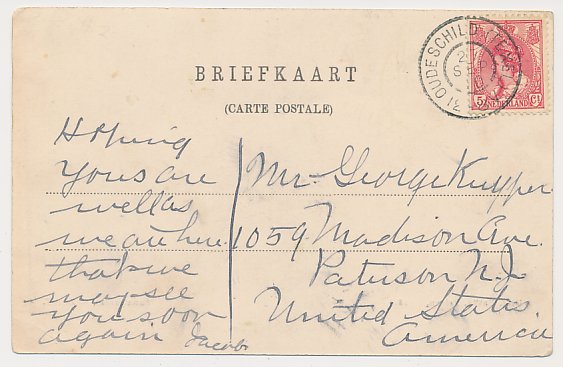 BRIEFKAART
(CARTE POSTALE)
OUDESCHILD (TEXEL)
SEP
5 NEDERLAND Ct
Hoping
you are
well as
we are here
that we
may see
you soon
again Jacob
Mr. George Kuyper
1059 Madison Ave.
Paterson N.J.
United States
America